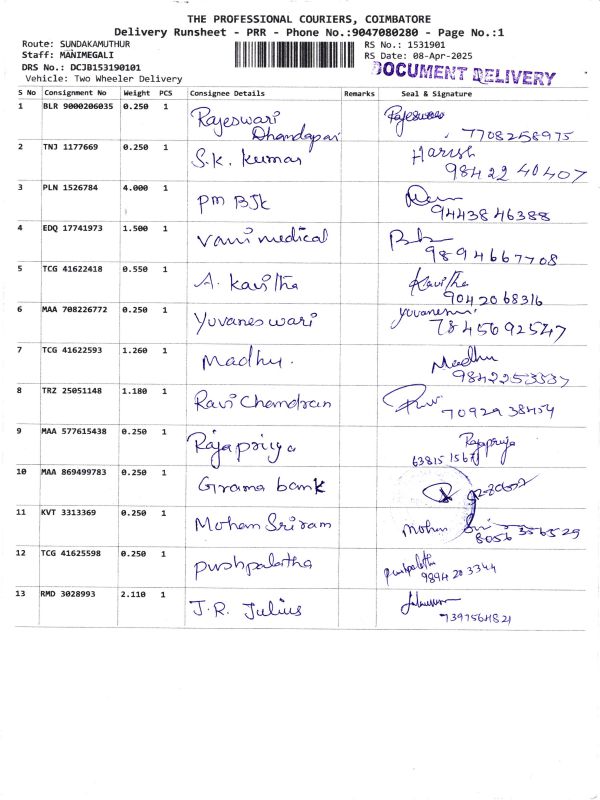 THE PROFESSIONAL COURIERS, COIMBATORE
Delivery Runsheet - PRR - Phone No.:9047080280 - Page No.:1
Route: SUNDAKAMUTHUR
RS No.: 1531901
Staff: MANIMEGALI
RS Date: 08-Apr-2025
DRS No.: DCJB153190101
DOCUMENT DELIVERY
Vehicle: Two Wheeler Delivery
S No Consignment No Weight PCS Consignee Details Remarks Seal & Signature
1 BLR 9000206035 0.250 1 Rajeswari Rajeswari
Dhandapani 7708258975
2 TNJ 1177669 0.250 1 S.K. Kumar Harish
98422 40407
3 PLN 1526784 4.000 1 PM BJK
9443846388
4 EDQ 17741973 1.500 1 Vani medical
9894667708
5 TCG 41622418 0.550 1 A. Kavitha Kavitha
9042068316
6 MAA 708226772 0.250 1 Yuvaneswari Yuvaneswari
7845692547
7 TCG 41622593 1.260 1 Madhu. Madhu
9842253537
8 TRZ 25051148 1.180 1 Ravi Chandran
70929 38454
9 MAA 577615438 0.250 1 Rajapriya Rajapriya
63815 1567
10 MAA 869499783 0.250 1 Grama bank
11 KVT 3313369 0.250 1 Mohan Sriram Mohan Sri
8056 356529
12 TCG 41625598 0.250 1 Pushpalatha Pushpalatha
9894203344
13 RMD 3028993 2.110 1 J.R. Julius
7397564821